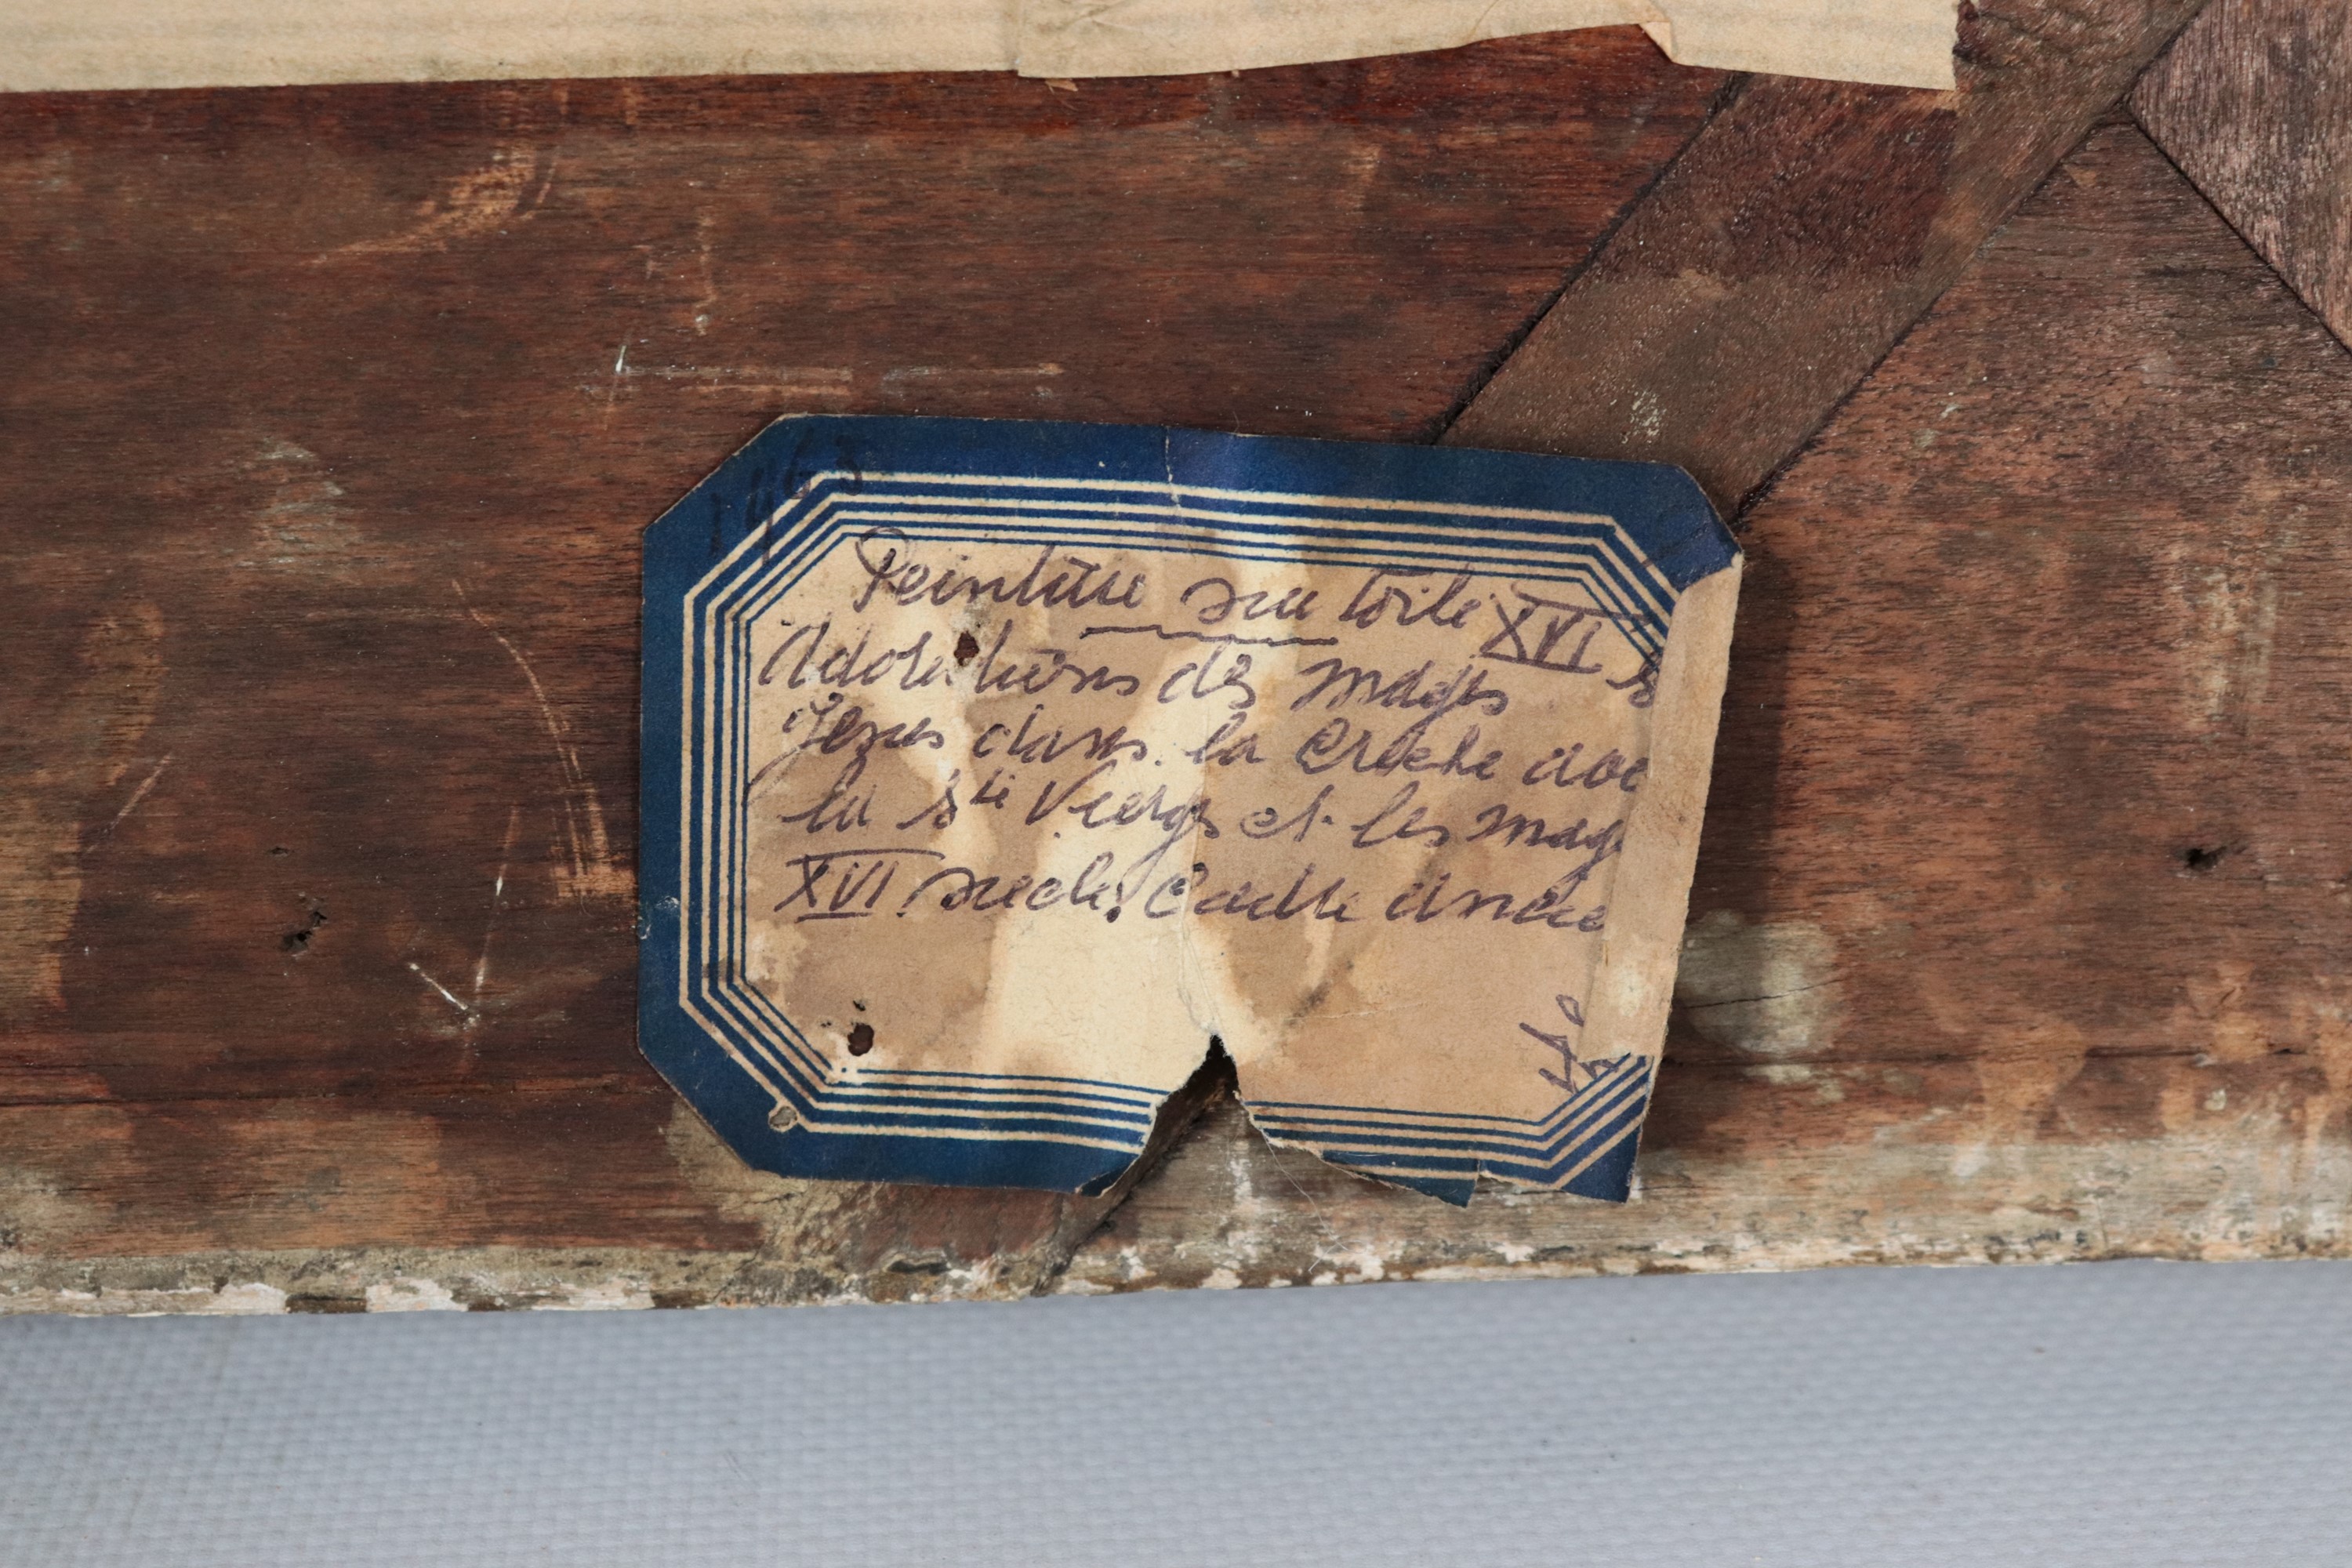 1463
Peinture sur toile XVI s
Adorations des mages
Jesus dans la Creche ave
la Ste Vierge et les mag
XVI siecle. Cadre ancie